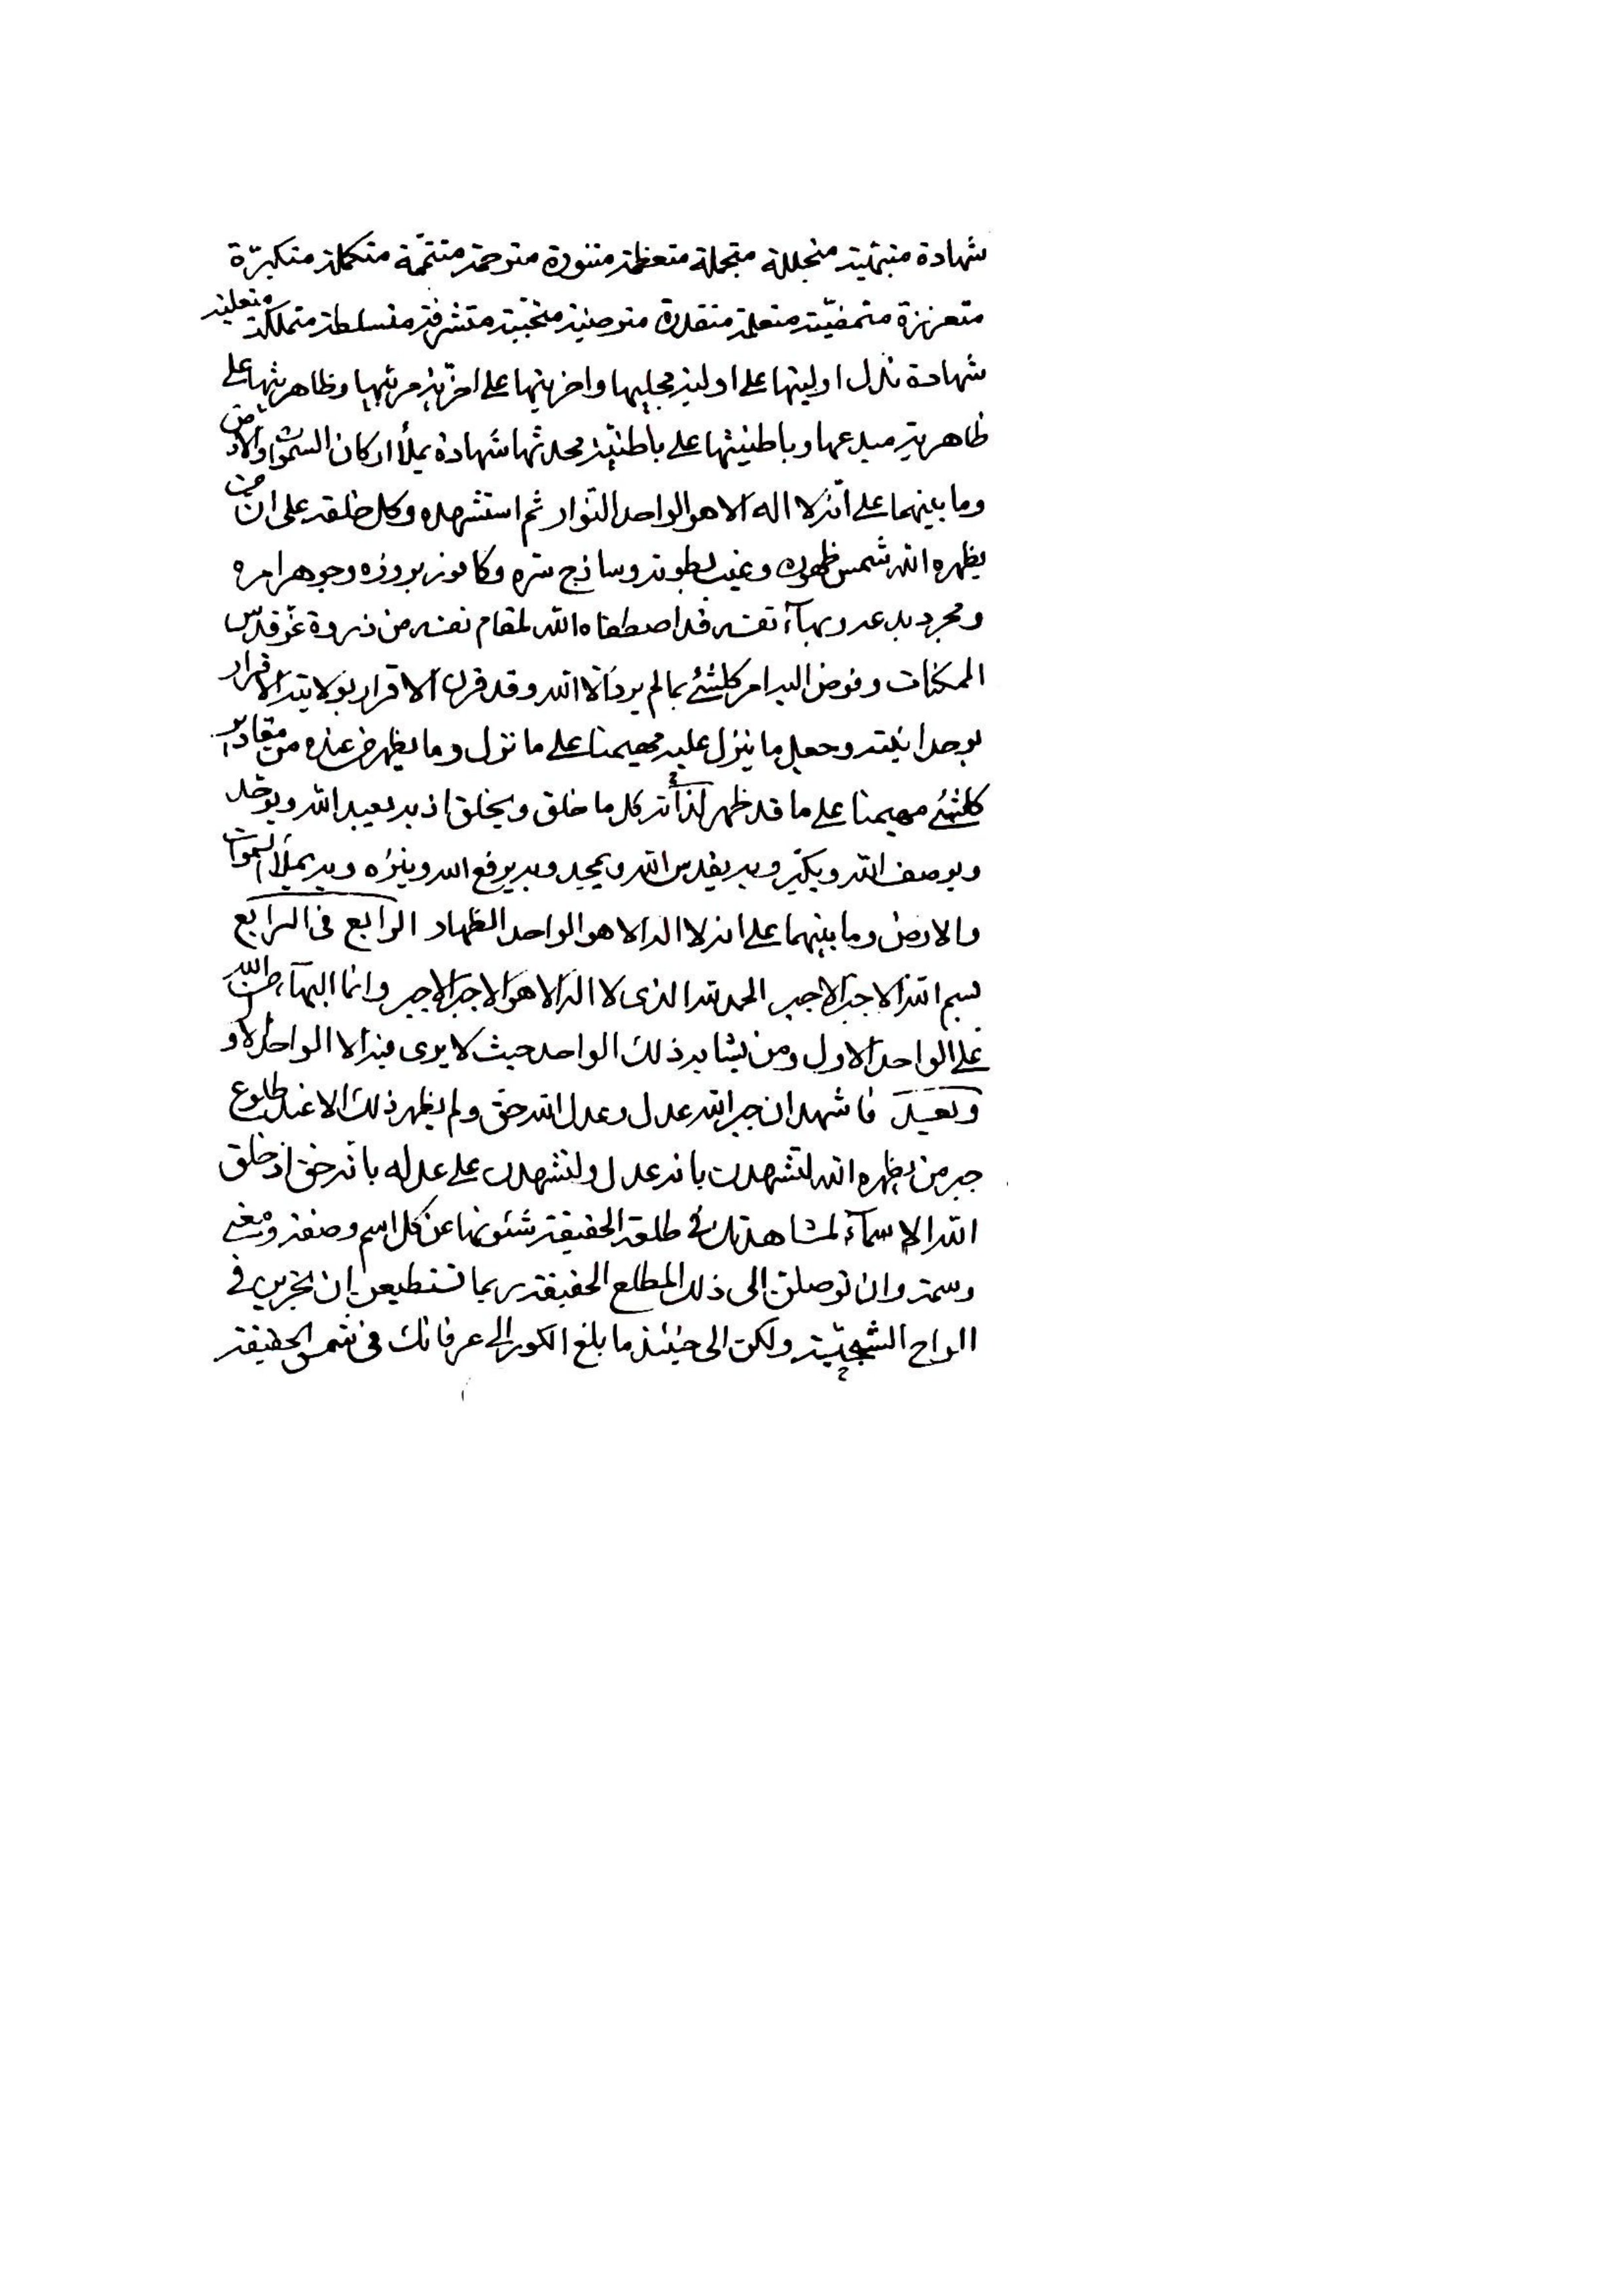 شهادة متبهئية متجللة متجملة متعظمة متنورة مترحمة متتمّمة متكملة متكبرّة
متعززة متمضيّة متعلمة متقدرة مترضية متحببية متشرفة متسلطة متملكة متعلية
شهادة تدل اوليتها على اولية مجليها واخريتها على اخرّية مرئيها وظاهريتها على
ظاهرية مبدعها وباطنيتها على باطنيّة محدثها شهادة يملأ اركان السموات والارض
وما بينهما على انّه لا اله الا هو الواحد النوار ثم استشهده وكل خلقه على انّ من
يظهره الله شمس ظهوره وغيب بطونه وساذج سره وكافور بروزه وجوهر امره
ومجرد بدعه وبهآء نفسه قد اصطفاه الله لمقام نفسه من ذروة عز قدس
الممكنات وفوض اليه امر كلشئ بما لم يرد الا الله وقد قرن الاقرار بولايته الاقرار
بوحدانيته وجعل ما ينزل عليه مهيمنا على ما نزل وما يظهر من عنده من مقادير
كلشئ مهيمنا على ما قد ظهر لذاته كل ما خلق ويخلق اذ به يعبد الله ويوحّد
ويوصف الله ويكبّر وبه يقدس الله ويمجد وبه يرفع الله وينزه وبه يملأ السموات
والارض وما بينهما على انه لا اله الا هو الواحد الظهار الرابع فى الرابع
بسم الله الاجبر الاجبر الحمد لله الذى لا اله الا هو الاجبر الاجبر وانما البهآء من الله
على الواحد الاول ومن يشابه ذلك الواحد حيث لا يرى فيه الا الواحد الاول
وبعد فاشهد ان جبر الله عدل وعدل الله حق ولم يظهر ذلك الا عند طلوع
جبر من يظهره الله لتشهدن بانه عدل ولتشهدن على عدله بانه حق اذ خلق
الله الاسمآء لمشاهدتك فى طلعة الحقيقة شئونها عن كل اسم وصفة ونعت
وسمة وان توصلن الى ذلك المطلع الحقيقة ربما تستطيعن ان تجرين فى
الواح الشجية ولكن الى حينئذ ما بلغ الكور الى عرفانك فى شمس الحقيقة